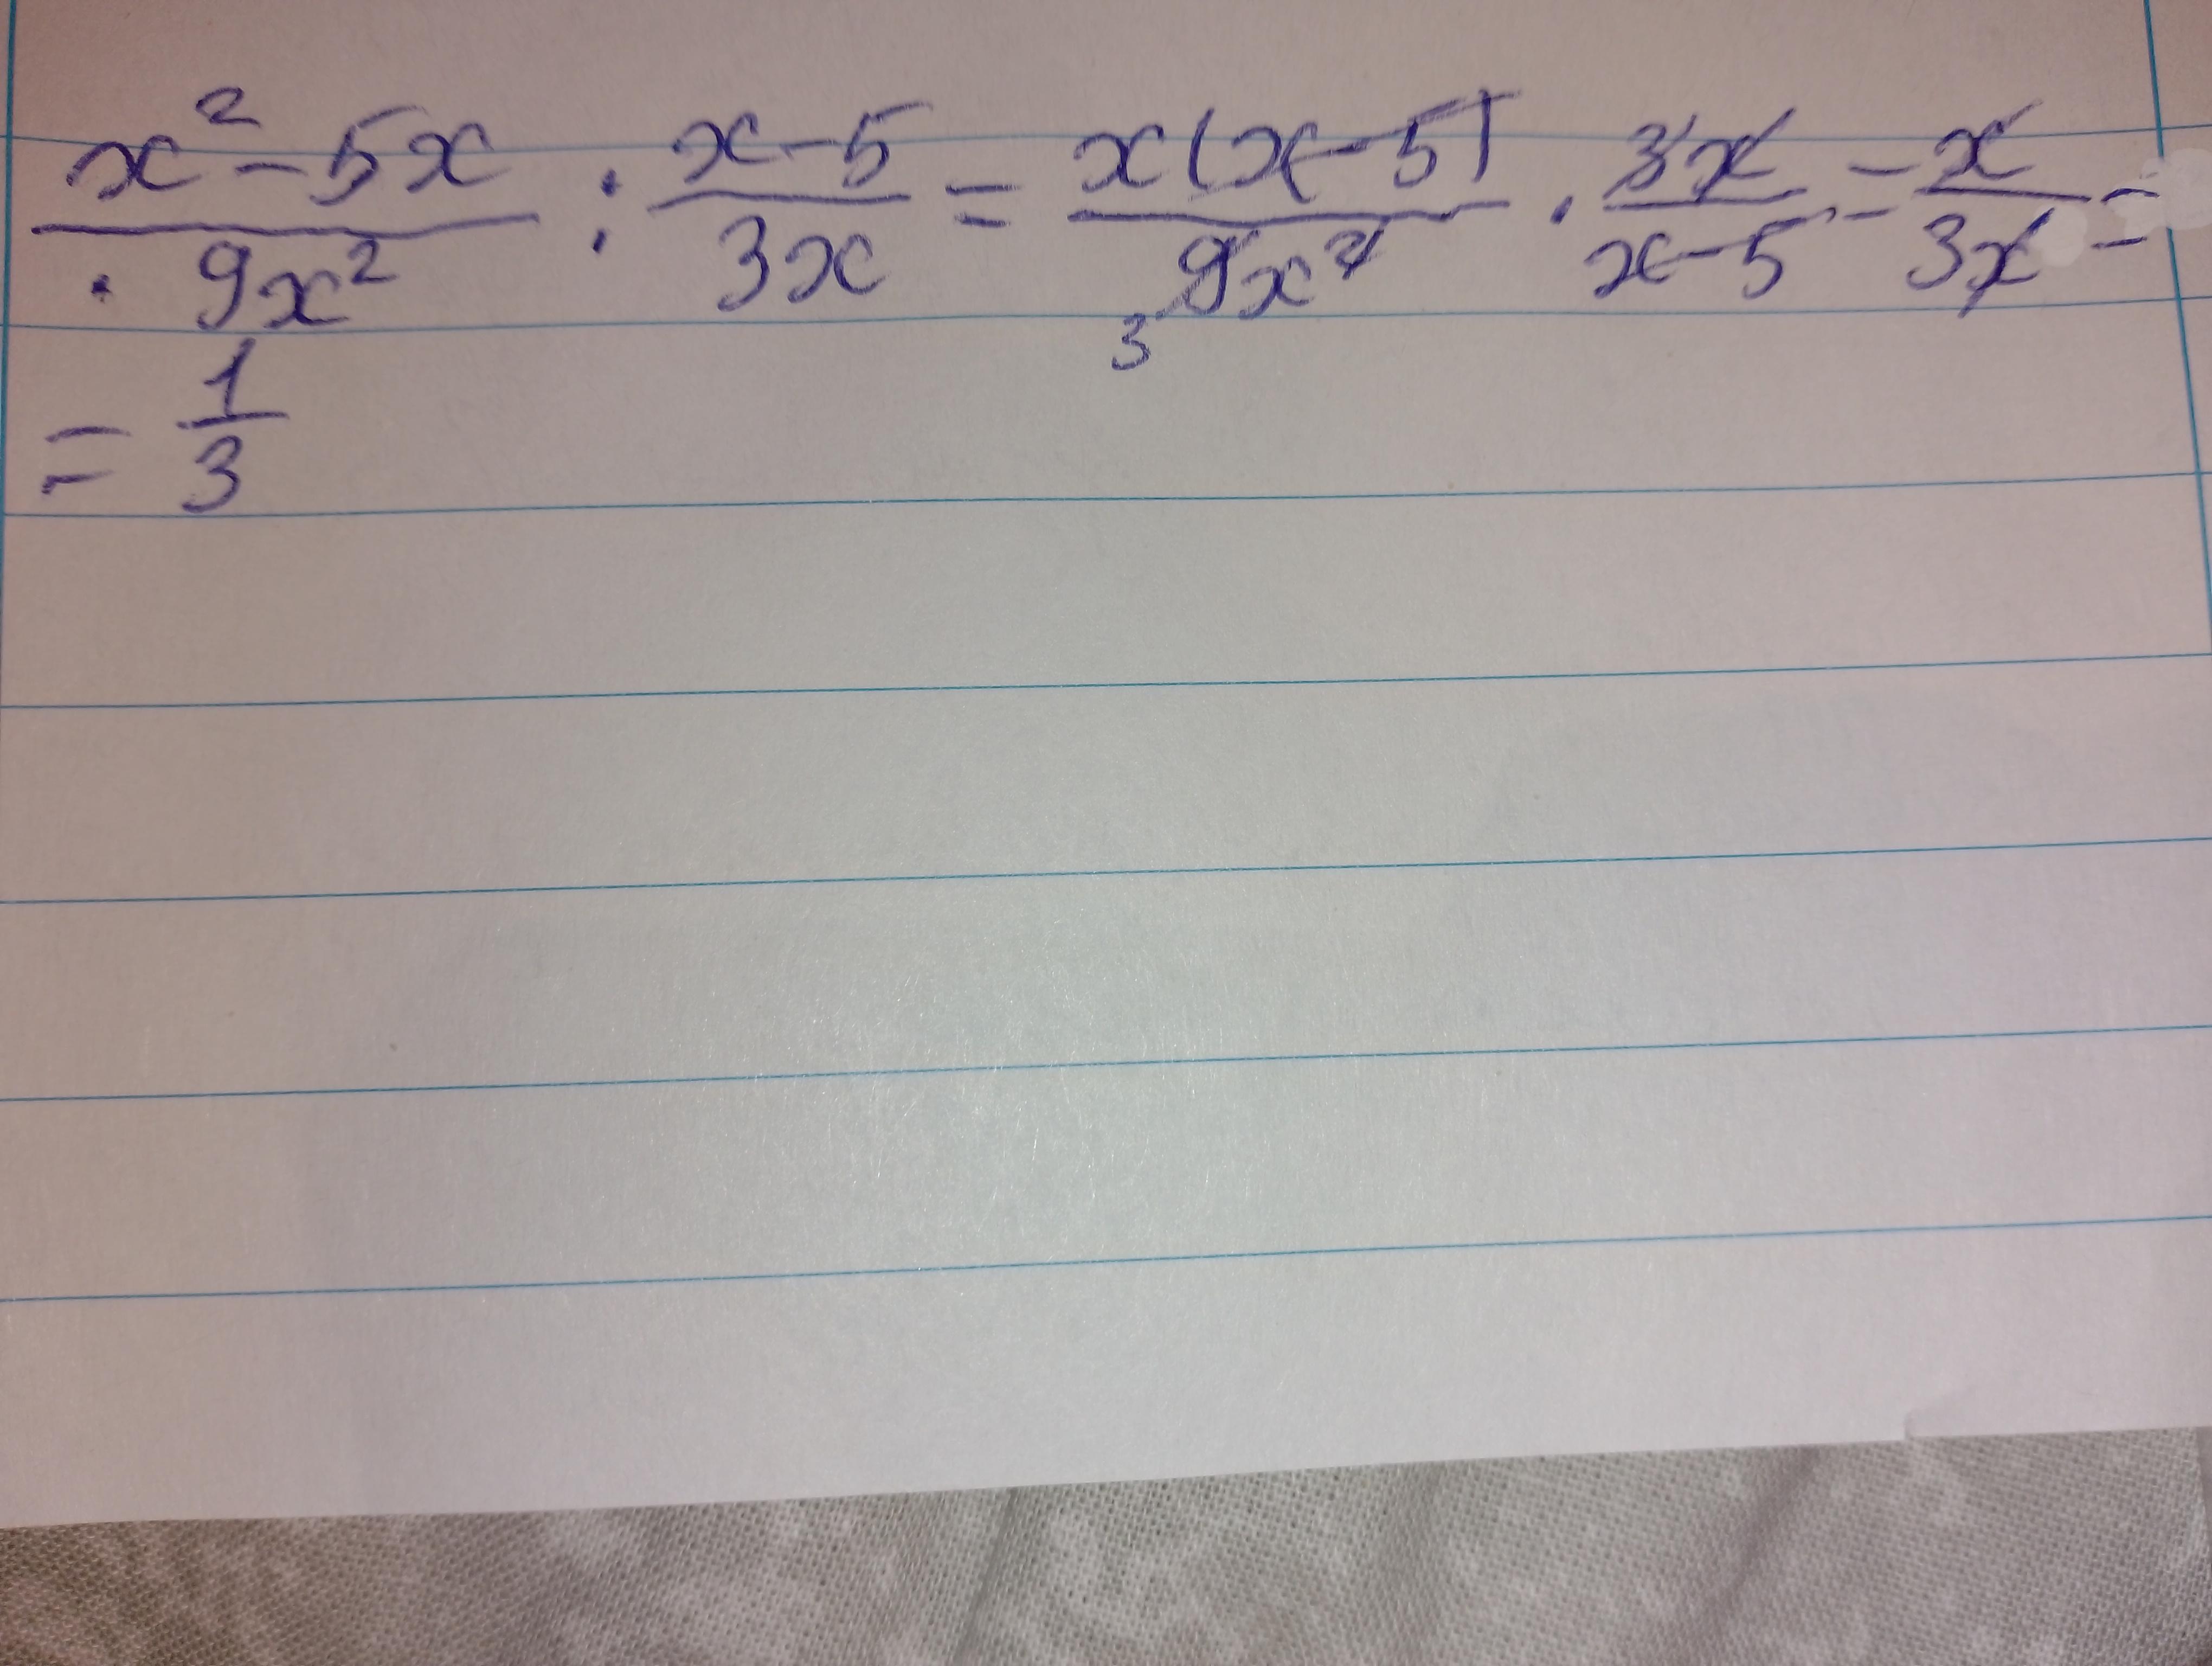 (x² - 5x)/(9x²) : (x-5)/(3x) = (x(x-5))/(9x²) · (3x)/(x-5) = x/(3x) =
3
= 1/3